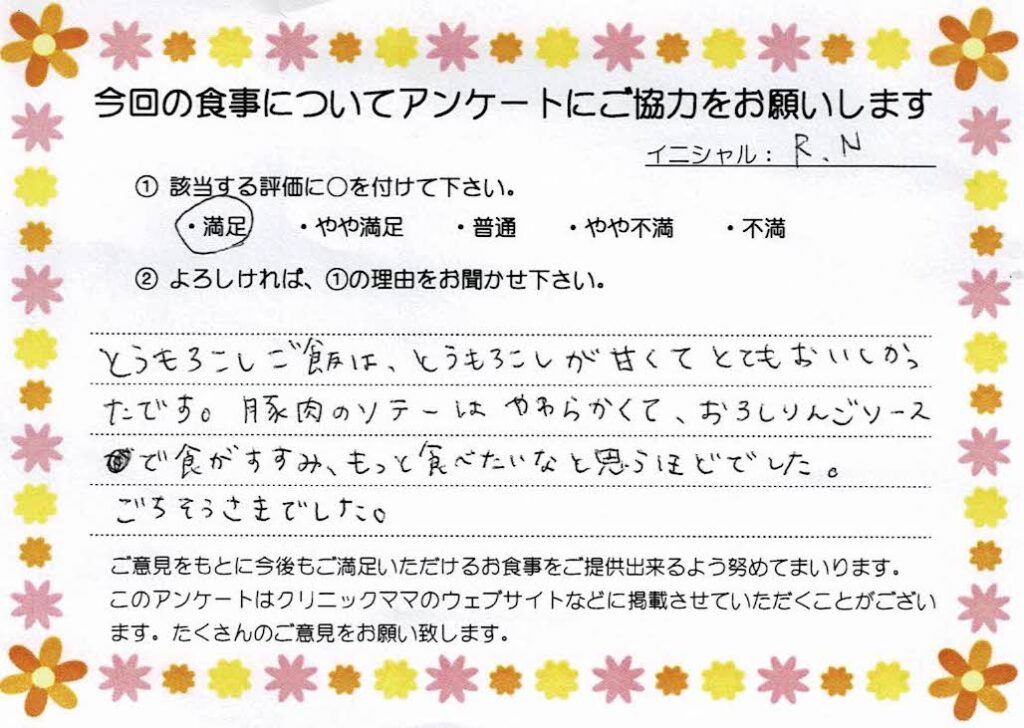 今回の食事についてアンケートにご協力をお願いします
イニシャル： R.N
① 該当する評価に○を付けて下さい。
・満足 ・やや満足 ・普通 ・やや不満 ・不満
② よろしければ、①の理由をお聞かせ下さい。
とうもろこしご飯は、とうもろこしが甘くてとてもおいしかっ
たです。豚肉のソテーはやわらかくて、おろしりんごソース
で食がすすみ、もっと食べたいなと思うほどでした。
ごちそうさまでした。
ご意見をもとに今後もご満足いただけるお食事をご提供出来るよう努めてまいります。
このアンケートはクリニックママのウェブサイトなどに掲載させていただくことがござい
ます。たくさんのご意見をお願い致します。